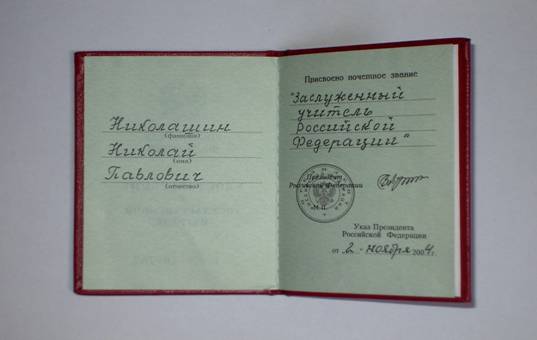 Николашин
(фамилия)
Николай
(имя)
Павлович
(отчество)
Присвоено почетное звание
"Заслуженный
учитель
Российской
Федерации"
Президент
Российской Федерации
М.П.
Указ Президента
Российской Федерации
от 2 ноября 2004 г.